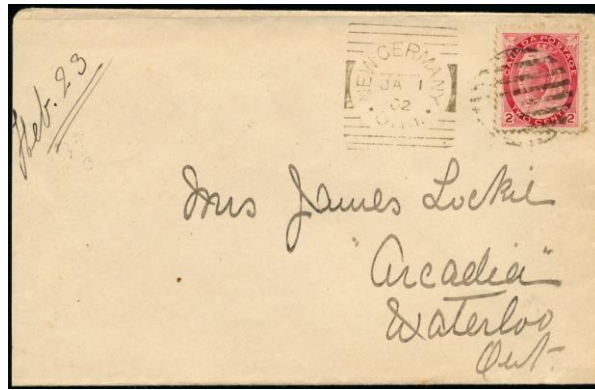 Feb. 23
NEW GERMANY
JA 1
02
ONT.
CANADA POSTAGE
2 TWO CENTS 2
Mrs James Lockie
"Arcadia"
Waterloo
Ont.